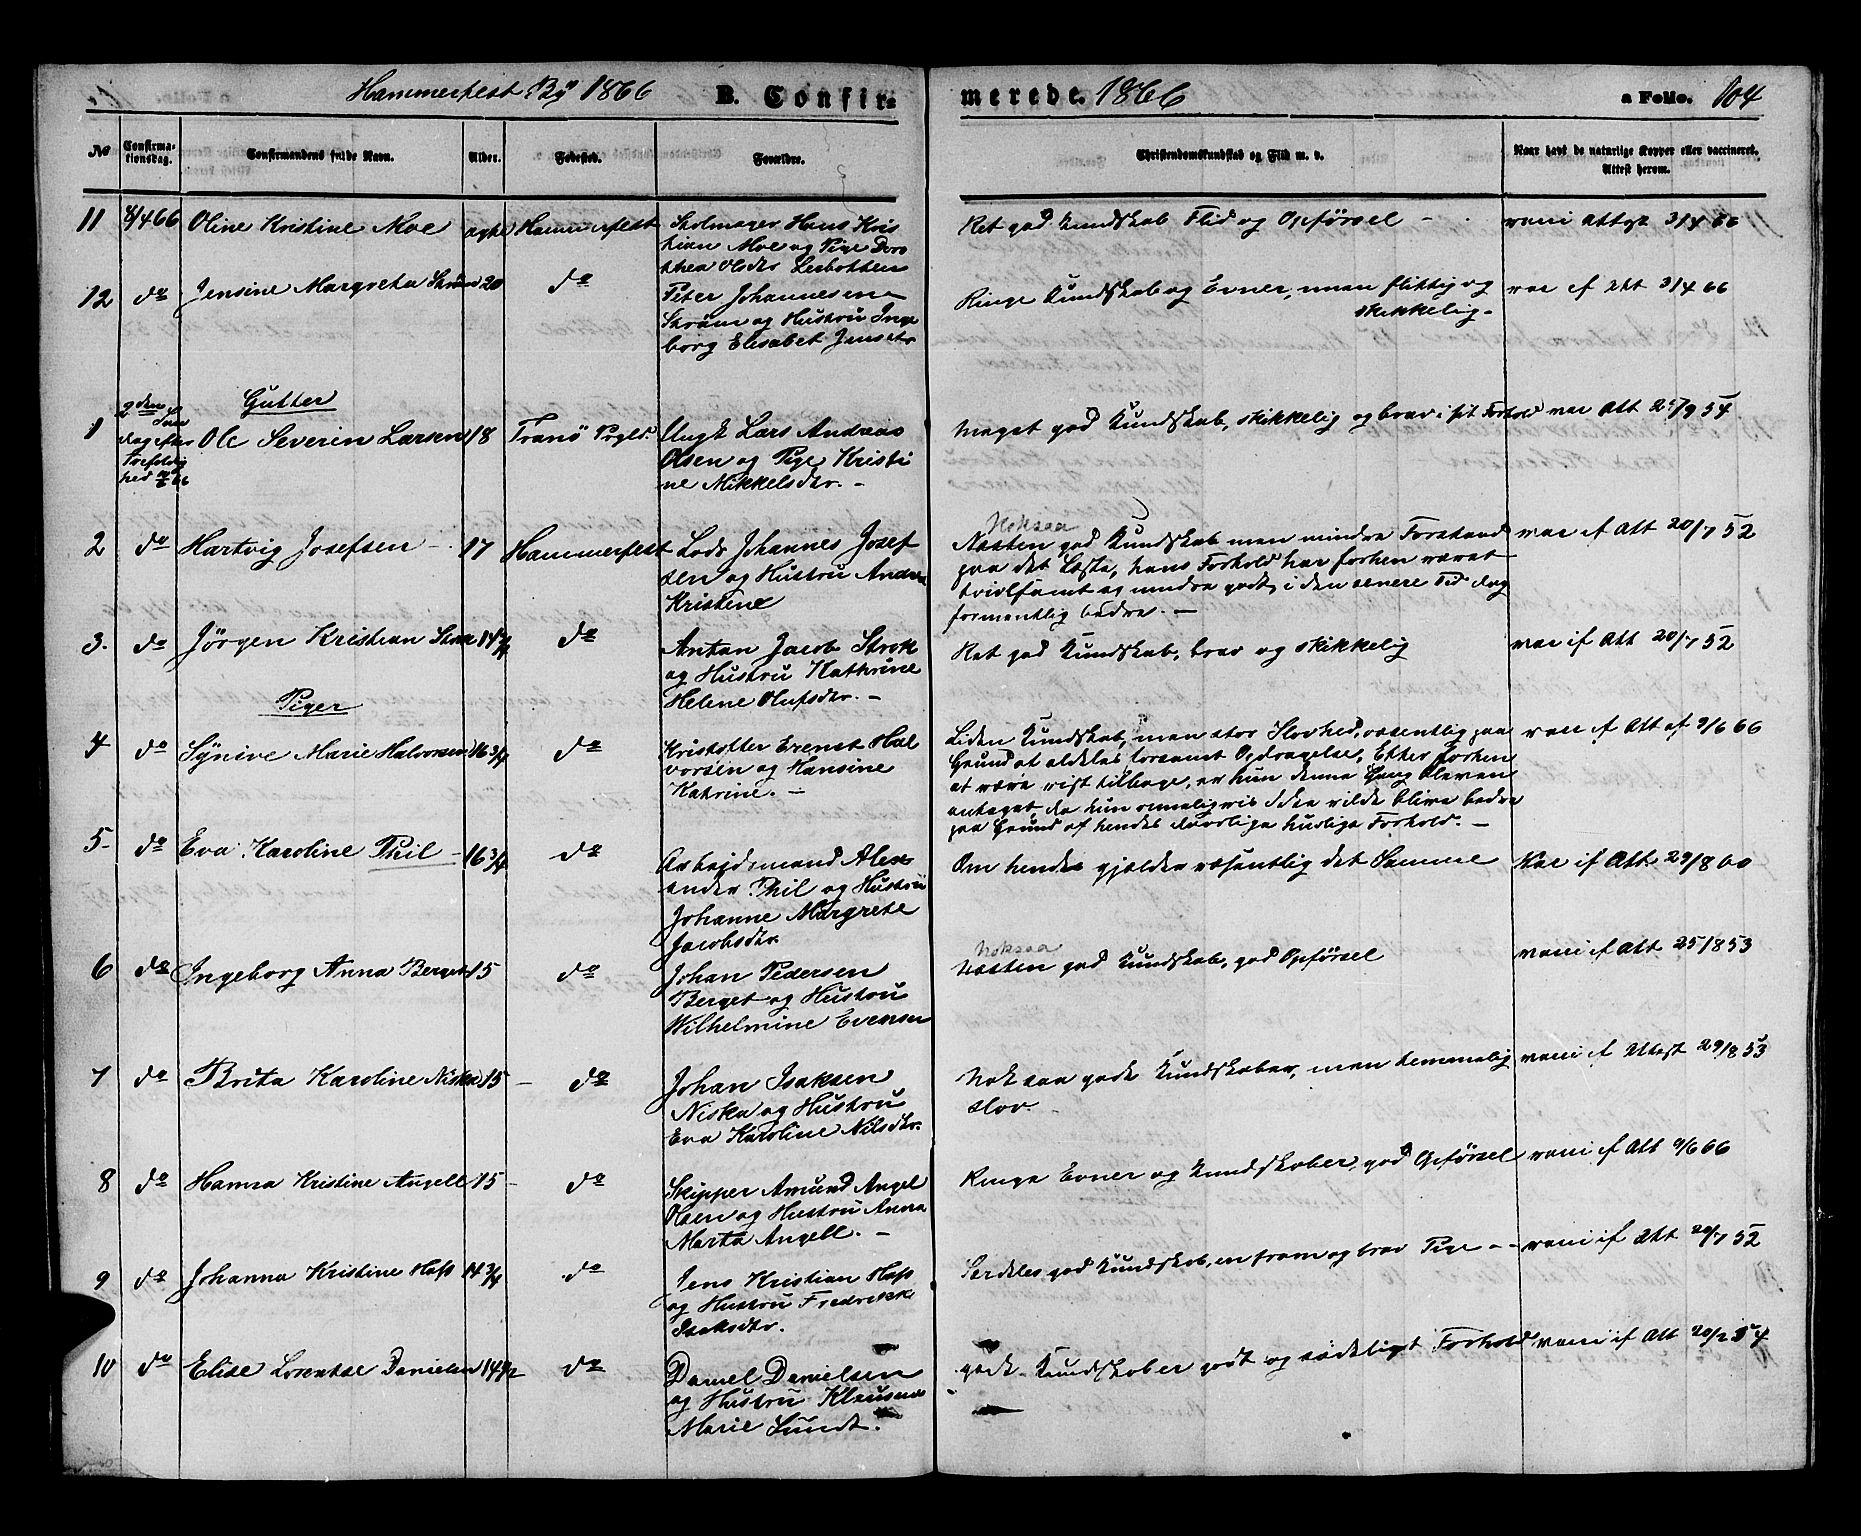 Hammerfest By 1866 B. Confir-
merede. 1866 a Folio. 104
No Confirma-
tionsdag. Confirmandens fulde Navn. Alder. Fødested. Forældre. Christendomskundskab og Flid m. v. Naar havt de naturlige Kopper eller vaccineret.
Attest herom.
11 8/4 66 Oline Kristine Moe Hammerfest Skolmager Hans Kris
tian Moe og Pige Doro
thea Olsdr Leibotten
Ret god Kundskab Flid og Opførsel - vacci Attest 3/4 66
12 do Jensine Margreta Strøm 20 do Peter Johannesen
Strøm og Hustru Inge
borg Elisabet Jensdtr
Ringe Kundskab og Evner, men flittig og
skikkelig. vac if Att 3/4 66
Gutter
1 2den Søn
dag efter
Trefoldig
hed Ole Severin Larsen 18 Tranø Prgld. Ungk Lars Andreas
Olsen og Pige Kristi
ne Mikkelsdtr. -
Meget god Kundskab, skikkelig og brav i sit Forhold vac Att 25/9 54
2 do Hartvig Josefsen - 17 Hammerfest Lods Johannes Josef
sen og Hustru Andrea
Kristine
Noksaa
Næsten god Kundskab men mindre Forstand
paa det Læste, hans Forhold har forhen været
tvivlsomt og mindre godt, i den senere Tid dog
formentlig bedre. - vac if Att 20/7 52
3. do Jørgen Kristian Strok 14 3/4 do Anton Jacob Strok
og Hustru Kathrine
Helene Olufsdtr. -
Ret god Kundskab, brav og skikkelig vac if Att 20/7 52
Piger
4 do Synive Marie Halvorsen 16 3/4 do Kristoffer Ernst Hal
vorsen og Hansine
Katrine. -
Liden Kundskab, men stor Slovhed, væsentlig paa
Grund af aldeles forsømt Opdragelse, Efter forhen
at være vist tilbage, er hun denne Gang bleven
antaget da hun rimeligvis ikke vilde blive bedre
paa Grund af hendes daarlige huslige Forhold. - vac if Att af 9/6 66
5 do Eva Karoline Phil - 16 3/4 do Arbejdsmand Alex
ander Phil og Hustru
Johanne Margrete
Jacobsdtr.
Om hende gjælder væsentlig det Samme Vac if Att 29/8 60
6 do Ingeborg Anna Berget 15 do Johan Pedersen
Berget og Hustru
Wilhelmine Evensen
Noksaa
Næsten god Kundskab, god Opførsel vacci if Att 25/8 53
7 do Brita Karoline Niska 15 - do Johan Isaksen
Niska og Hustru
Eva Karoline Nilsdtr.
Nok saa gode Kundskaber, men temmelig
slov. vacci if Attest 29/8 53
8 do Hanna Kristine Angell 15 - do Skipper Amund Angel
Olsen og Hustru Anna
Marta Angell. -
Ringe Evner og Kundskaber, god Opførsel vacci if Att 9/6 66
9 do Johanna Kristine Hass 14 3/4 do Jens Kristian Hass
og Hustru Fredrikke
Isaksdtr.
Særdeles god Kundskab, en from og brav Pige - - vacci if Att 20/7 52
10 do Elise Lorentse Danielsen 14 1/2 do Daniel Danielsen
og Hustru Klausine
Marie Lundt.
gode Kundskaber godt og sædeligt Forhold vacci if Att 20/2 54